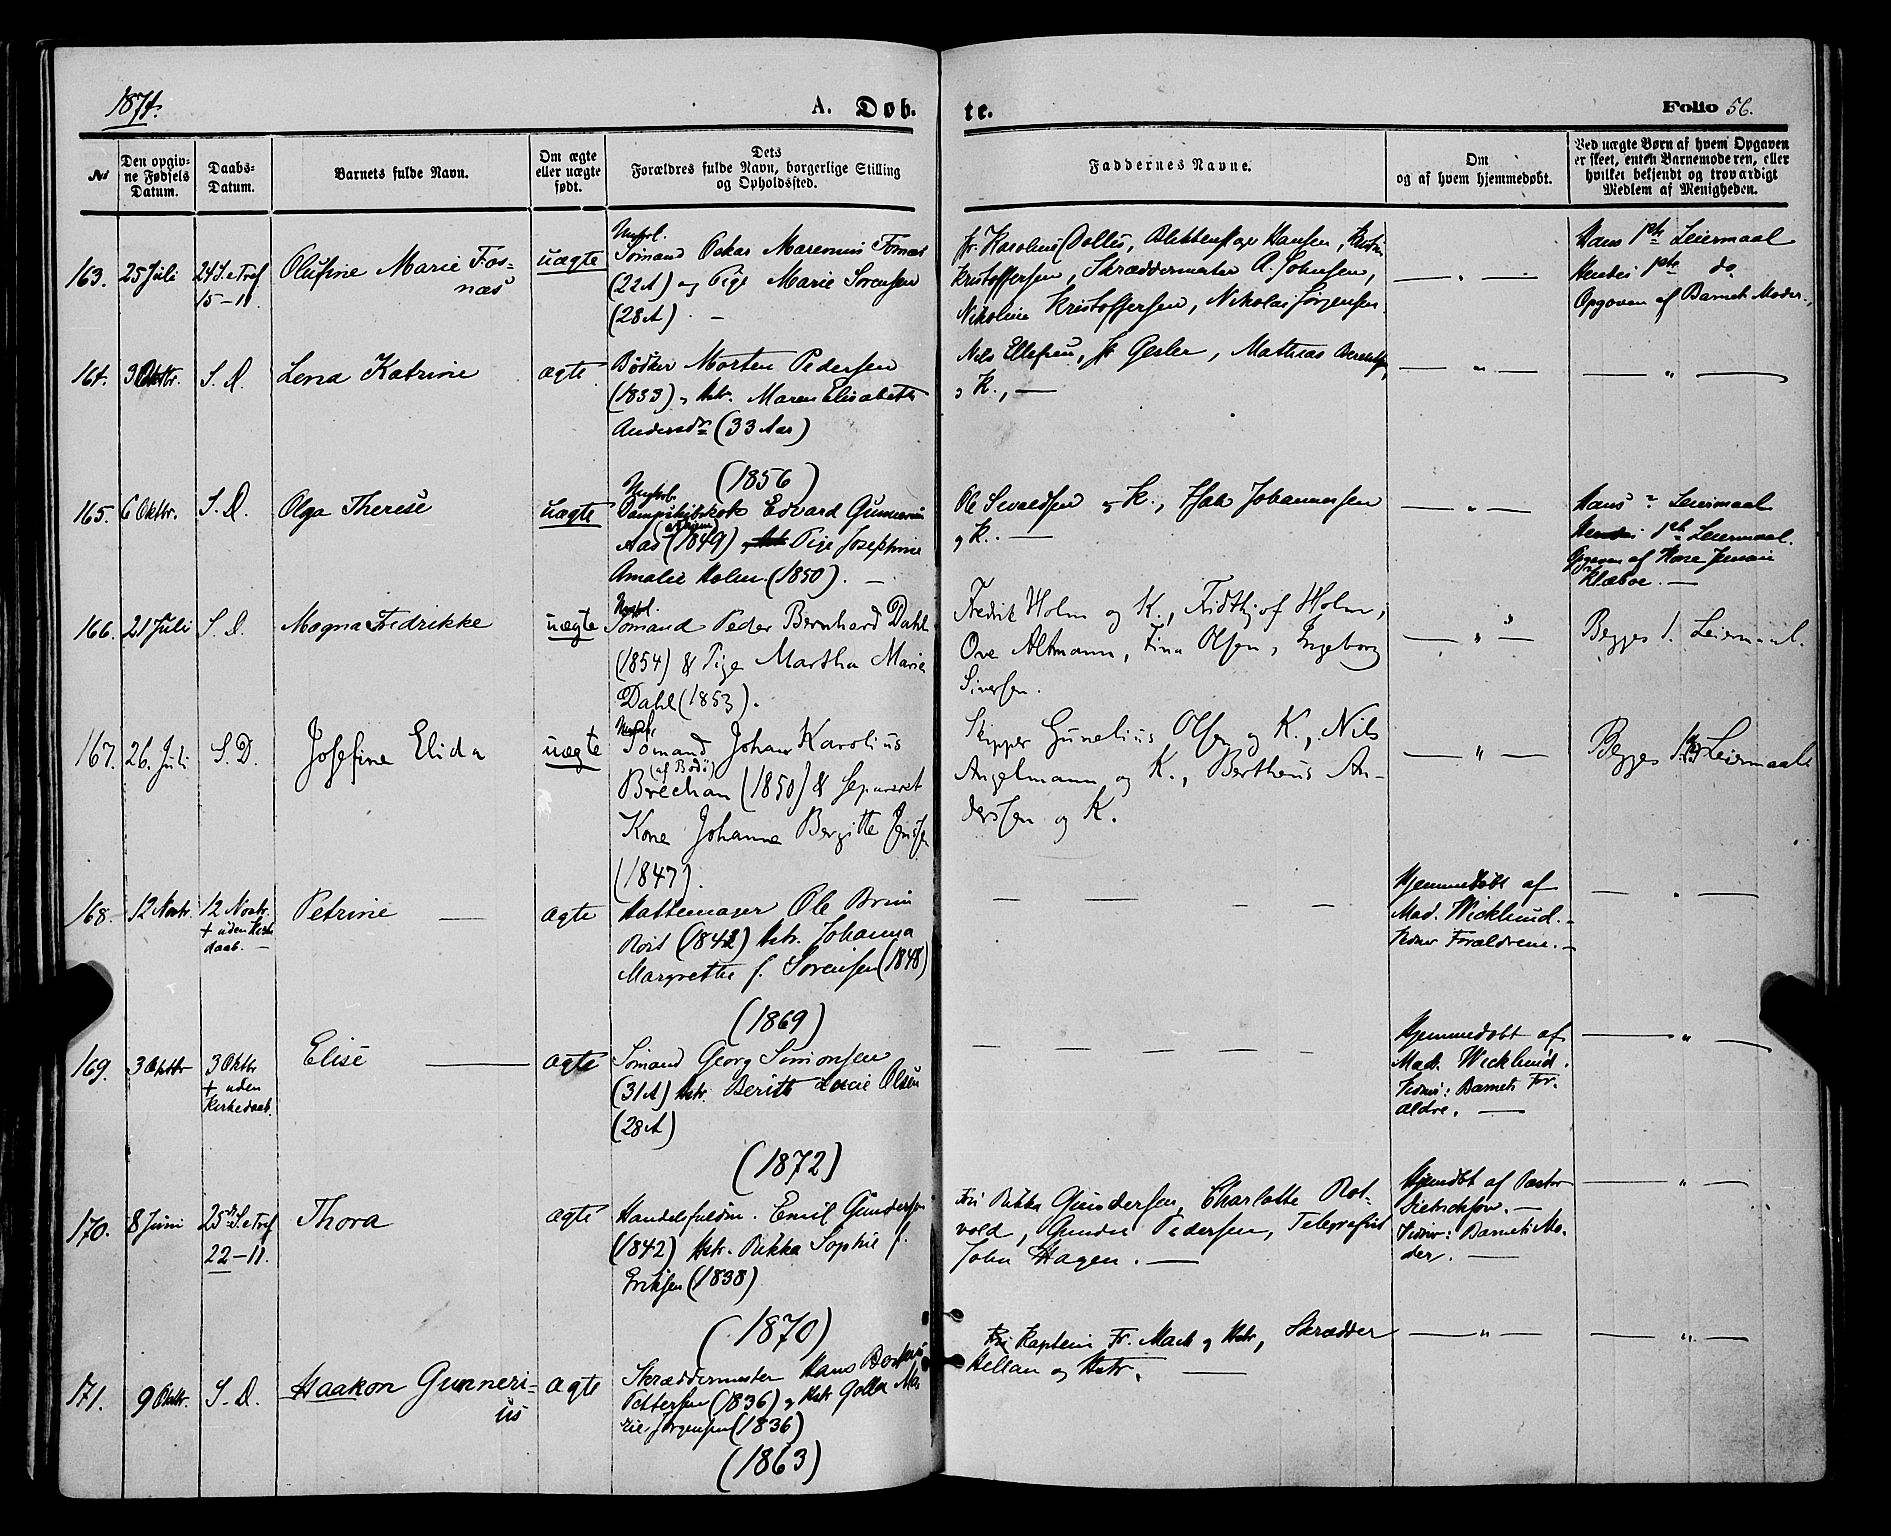 1874.
A. Døb-
te.
Folio 56.
No
Den opgiv-
ne Fødsels
Datum.
Daabs-
Datum.
Barnets fulde Navn.
Om ægte
eller uægte
født.
Dets
Forældres fulde Navn, borgerlige Stilling
og Opholdssted.
Faddernes Navne.
Om
og af hvem hjemmedøbt.
Ved uægte Børn af hvem Opgaven
er skeet, enten Barnemoderen, eller
hvilket bekjendt og troværdigt
Medlem af Menigheden.
163. 25 Juli
24 S. e Tref
15-11
Olufine Marie Fos-
næs
uægte
Sømand Oskar Maremius Fosnæs
(22 A) og Pige Marie Sørensen
(28 A). —
Kristoffersen, Skræddermester A. Johnsen,
Nikoline Kristoffersen, Nikolai Jørgensen.
— " —
Hans 1ste Leiermaal
Hendes 1ste do
Opgaven af Barnets Moder.
164. 3 Oktbr. S. D. Lena Katrine ægte.
Bødker Morten Pedersen
(1853) Hstr. Maren Elisabeth
Andersdr (33 Aar)
(1856)
Nils Ellefsen, Gesler, Mathias
og K., —
— " —
— " —
165. 6 Oktbr. S. D. Olga Therese uægte
Ungk.
Dampskibskok Edvard Gunnerius
Aas (1849) Pige Josephine
Amalie Holm (1850). —
Ole Sevaldsen og K., Johannessen
og K. —
— " —
Hans ? Leiermaal
Hendes 1ste Leiermaal.
Opgaven af Kone
Klæboe. —
166. 21 Juli S. D. Magna Fredrikke uægte
Ungkl.
Sømand Peder Bernhard Dahl
(1854) & Pige Martha Marie
Dahl (1853).
Fredrik Holm og K., Fridthjof Holm,
Ove Altmann, Fina Olsen, Ingeborg
Siversen.
— " —
Begges 1. Leiermaal.
167. 26. Juli S. D. Josefine Elida uægte
Ungkl.
Sømand Johan Karolius
(af Bodø)
Brechan (1850) & separeret
Kone Johanna Bergitte Jenssen
(1847).
Skipper Gunelius Olsen og K., Nils
Angelmann og K., Bertheus An-
derssen og K.
— " —
Begges Leiermaal
168. 12 Novbr.
12 Novbr.
+ uden Kirke
daab. —
Petrine — ægte
Hattemager Ole Brun
Roit (1842) Hstr. Johanna
Margrethe f. Sørensen (1848)
(1869)
— — — —
Hjemmedøbt af
Mad. Wicklund. —
Vidner Forældrene. —
— " —
169. 3 Oktbr
3 Oktbr
+ uden
Kirkedaab.
Elise — ægte
Sømand Georg Simonsen
(31 A) Hstr. Berith Lucie Olsen
(28 A)
(1872)
— — — — —
Hjemmedøbt af
Mad. Wicklund.
Vidner: Barnets For-
ældre. —
— " —
170. 8 Juni
25de S. e Tref
22-11.
Thora ægte
Handelsfuldm. Emil Gundersen
(1842) Hstr. Rikka Sophie f.
Eriksen (1838)
(1870)
Rikka Gundersen, Charlotte Rot-
vold, Pedersen, Telegrafist
John Hagen. —
Hjemdøbt af Pastor
Dietrichson. —
Vidner: Barnets Mo-
der. —
— " —
171. 9 Oktbr. S. D. Haakon Gunneri-
us
ægte
Skræddermester Hans
Pettersen (1836) og Hstr Golla Ma-
rie Jørgensen (1836)
(1863)
Kaptein Fr. Mack og Hstr, Skrædder
Hellan og Hstr. —
— " —
— " —